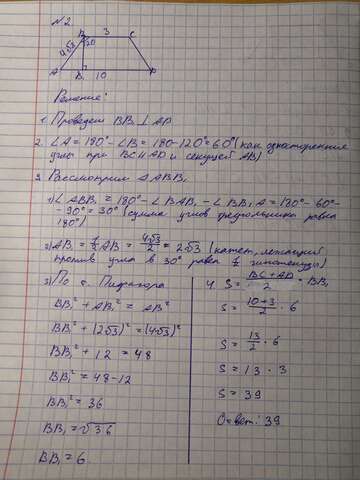 №2.
B 3 C
4√3 120
A B₁ 10 D
Решение:
1. Проведем BB₁ ⊥ AD
2. ∠A = 180° - ∠B = 180 - 120° = 60° (как односторонние
углы при BC ∥ AD и секущей AB)
3. Рассмотрим △ABB₁
1) ∠ABB₁ = 180° - ∠BAB₁ - ∠BB₁A = 180° - 60° -
- 90° = 30° (сумма углов треугольника равна
180°)
2) AB₁ = ½AB = 4√3/2 = 2√3 (катет, лежащий
против угла в 30° равен ½ гипотенузы)
3) По т. Пифагора
BB₁² + AB₁² = AB²
BB₁² + (2√3)² = (4√3)²
BB₁² + 12 = 48
BB₁² = 48 - 12
BB₁² = 36
BB₁ = √36
BB₁ = 6
4. S = BC + AD/2 · BB₁
S = 10 + 3/2 · 6
S = 13/2 · 6
S = 13 · 3
S = 39
Ответ: 39